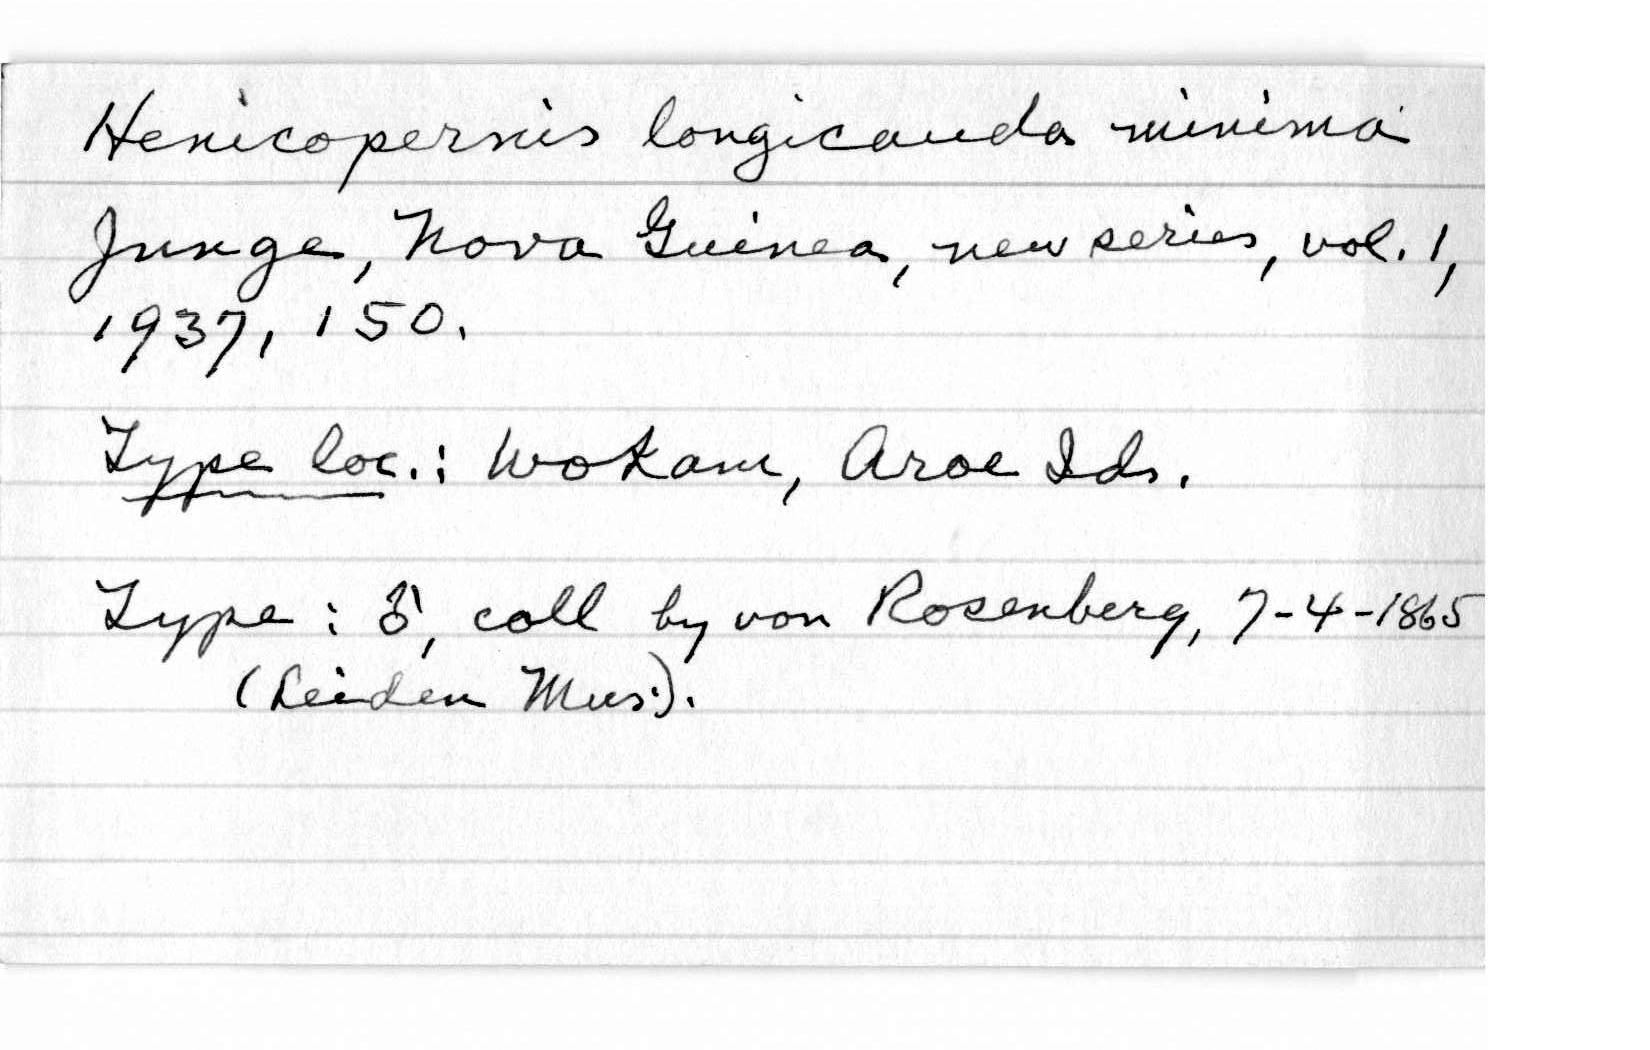 Henicopernis longicauda minima
Junge, Nova Guinea, new series, vol. 1,
1937, 150.
Type loc.: Wokam, Aroe Ids.
Type : ♂, coll by von Rosenberg, 7-4-1865
(Leiden Mus.).